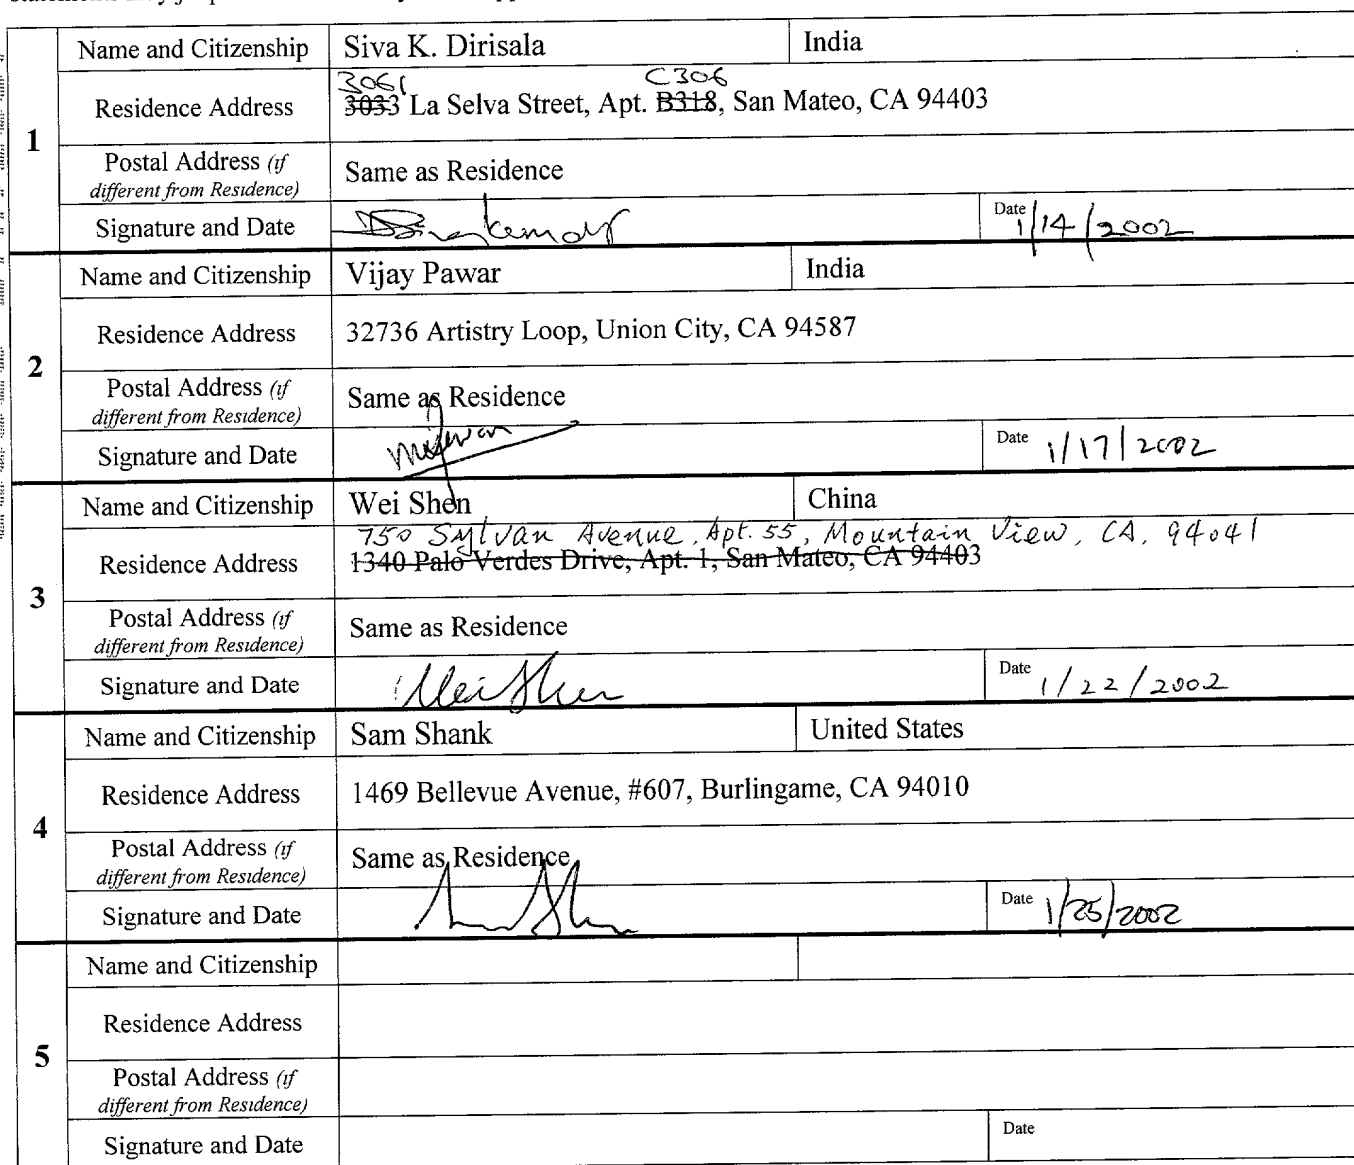 1
Name and Citizenship Siva K. Dirisala India
3061 C306
Residence Address 3033 La Selva Street, Apt. B318, San Mateo, CA 94403
Postal Address (if
different from Residence) Same as Residence
Signature and Date Date 1/14/2002
2
Name and Citizenship Vijay Pawar India
Residence Address 32736 Artistry Loop, Union City, CA 94587
Postal Address (if
different from Residence) Same as Residence
Signature and Date Date 1/17/2002
3
Name and Citizenship Wei Shen China
750 Sylvan Avenue, Apt. 55, Mountain View, CA, 94041
Residence Address 1340 Palo Verdes Drive, Apt. 1, San Mateo, CA 94403
Postal Address (if
different from Residence) Same as Residence
Signature and Date Wei Shen Date 1/22/2002
4
Name and Citizenship Sam Shank United States
Residence Address 1469 Bellevue Avenue, #607, Burlingame, CA 94010
Postal Address (if
different from Residence) Same as Residence
Signature and Date Date 1/25/2002
5
Name and Citizenship
Residence Address
Postal Address (if
different from Residence)
Signature and Date Date